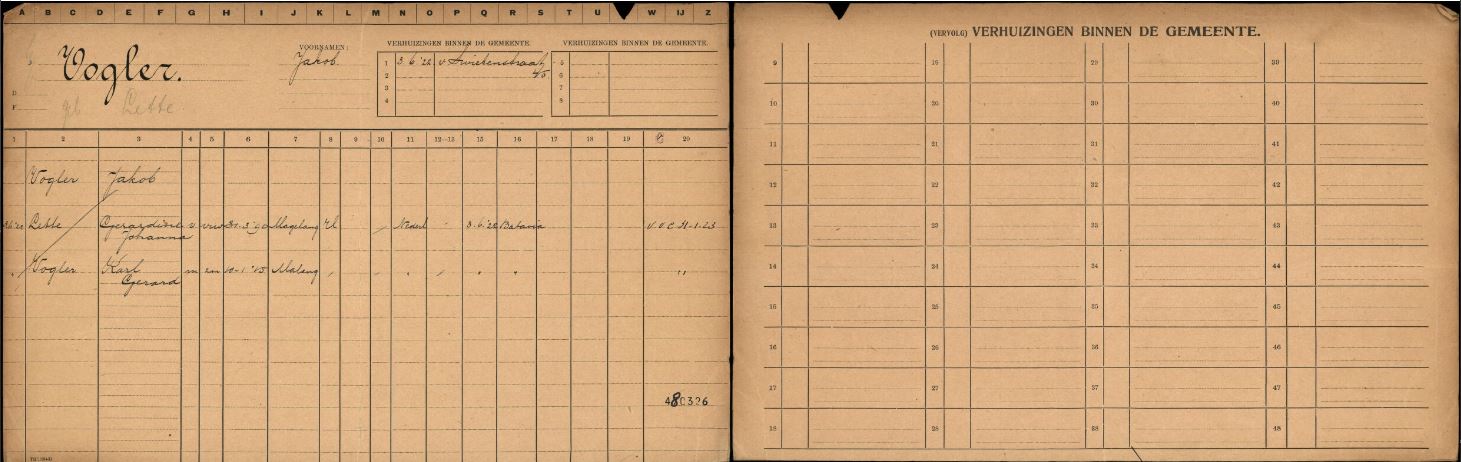 A B C D E F G H I J K L M N O P Q R S T U W IJ Z
Vogler.
gb Lette
D
F
VOORNAMEN:
Jakob
VERHUIZINGEN BINNEN DE GEMEENTE.
1 3.6.'22 v Swietenstraat
2 45
3
4
VERHUIZINGEN BINNEN DE GEMEENTE.
5
6
7
8
1 2 3 4 5 6 7 8 9 10 11 12-13 15 16 17 18 19 20
Vogler Jakob
Lette Gerardine v vrw 30.3.'90 Magelang Nederl 3.6.'22 Batavia V.O.C.
Johanna
Vogler Karl m zn 10-1-'15 Malang " "
Gerard
480326
(VERVOLG) VERHUIZINGEN BINNEN DE GEMEENTE.
9 19 29 39
10 20 30 40
11 21 31 41
12 22 32 42
13 23 33 43
14 24 34 44
15 25 35 45
16 26 36 46
17 27 37 47
18 28 38 48